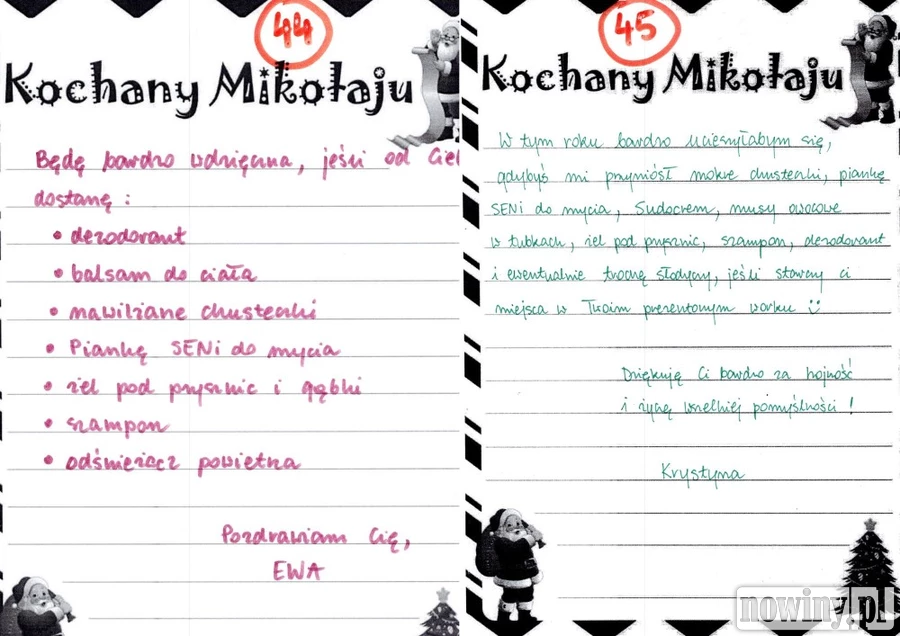 44
Kochany Mikołaju
Będę bardzo wdzięczna, jeśli od Cieb
dostanę :
• dezodorant
• balsam do ciała
• nawilżane chusteczki
• Piankę SENI do mycia
• żel pod prysznic i gąbki
• szampon
• odświeżacz powietrza
Pozdrawiam Cię,
EWA
45
Kochany Mikołaju
W tym roku bardzo ucieszyłabym się,
gdybyś mi przyniósł mokre chusteczki, piankę
SENI do mycia, Sudocrem, musy owocowe
w tubkach, żel pod prysznic, szampon, dezodorant
i ewentualnie trochę słodyczy, jeśli starczy ci
miejsca w Twoim prezentowym worku ☺
Dziękuję Ci bardzo za hojność
i życzę wszelkiej pomyślności !
Krystyna
nowiny.pl